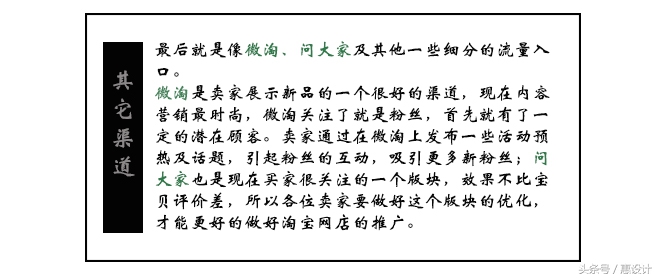 其它渠道
最后就是像微淘、问大家及其他一些细分的流量入
口。
微淘是卖家展示新品的一个很好的渠道，现在内容
营销最时尚，微淘关注了就是粉丝，首先就有了一
定的潜在顾客。卖家通过在微淘上发布一些活动预
热及话题，引起粉丝的互动，吸引更多新粉丝；问
大家也是现在买家很关注的一个版块，效果不比宝
贝评价差，所以各位卖家要做好这个版块的优化，
才能更好的做好淘宝网店的推广。
头条号 / 惠设计